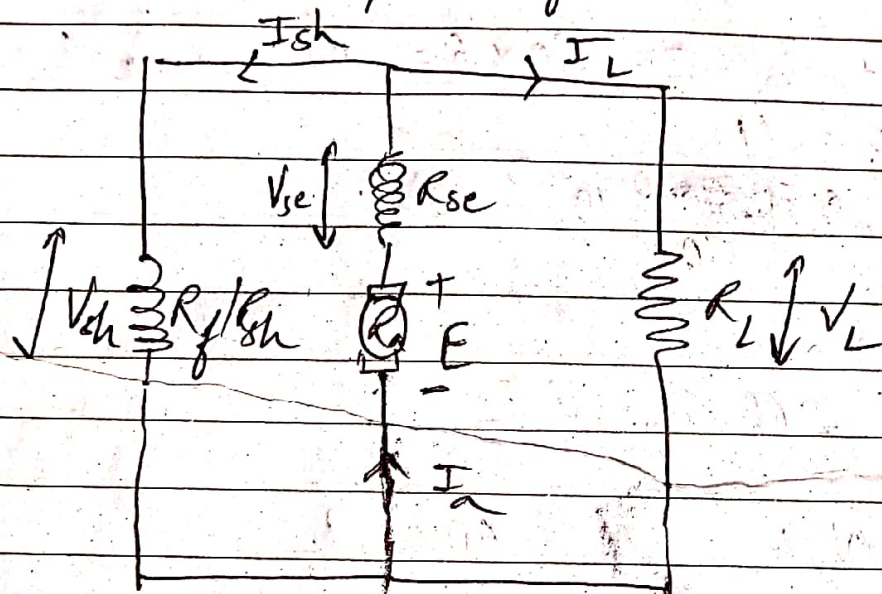 Ish
IL
Vse
Rse
+
Vsh
Rf/Rsh
Ra
E
RL
VL
-
Ia